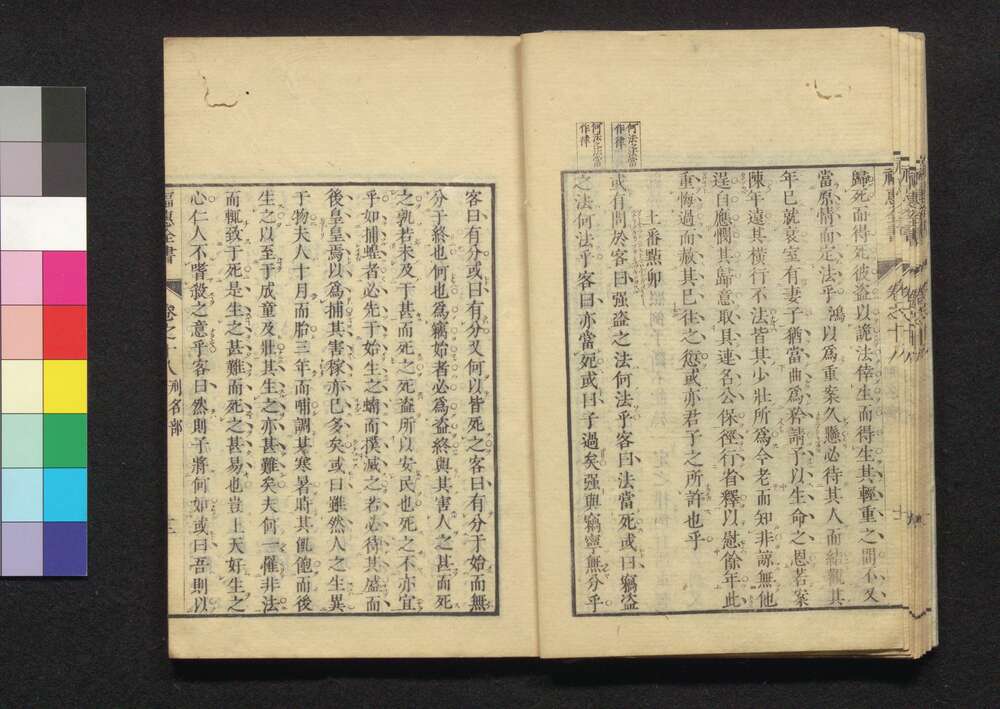 歸死而得死彼盜以詭法倖生而得生其輕重之間不又
當原情而定法乎鴻以為重案久懸必待其人面結覈其
年已就衰室有妻子猶當曲為矜請予以生命之恩若案
陳年遠其橫行不法皆其少壯所為今老而知非諒無他
逞自應憫其歸意取具連名公保徑行省釋以慰餘年此
重悔過而赦其已往之愆或亦君子之所許也乎
上番㸃卯
或有問於客曰强盜之法何法乎客曰法當死或曰竊盜
之法何法乎客曰亦當死或曰子過矣强與竊寧無分乎
何法法當作律
何法法當作律
福惠全書
卷之十八
客曰有分或曰有分又何以皆死之客曰有分于始而無
分于終也何也為竊始者必為盜終與其害人之甚而死
之孰若未及于甚而死之死盜所以安民也死之不亦宜
乎如捕蝗者必先于始生之蝻而撲滅之若必待其盛而
後皇皇焉以為捕其害稼亦已多矣或曰雖然人之生異
于物夫人十月而胎三年而哺調其寒暑時其飢飽而後
生之以至于成童及壯其生之亦甚難矣夫何一罹非法
而輒致于死是生之甚難而死之甚易也豈上天好生之
心仁人不嗜殺之意乎客曰然則子將何如或曰吾則以
福惠全書
卷之十八
刑名部